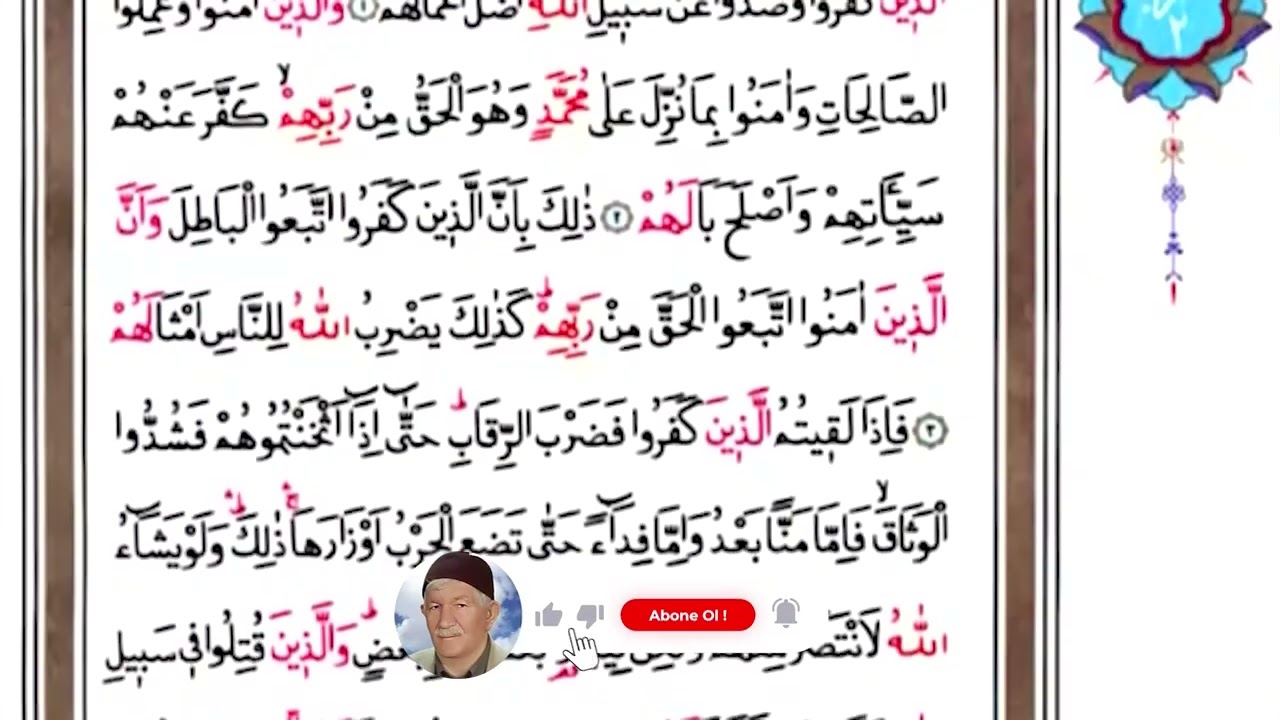 الَّذِينَ كَفَرُوا وَصَدُّوا عَنْ سَبِيلِ اللّٰهِ اَضَلَّ اَعْمَالَهُمْ ١ وَالَّذِينَ اٰمَنُوا وَعَمِلُوا
الصَّالِحَاتِ وَاٰمَنُوا بِمَا نُزِّلَ عَلٰى مُحَمَّدٍ وَهُوَ الْحَقُّ مِنْ رَبِّهِمْۙ كَفَّرَ عَنْهُمْ
سَيِّـَٔاتِهِمْ وَاَصْلَحَ بَالَهُمْ ٢ ذٰلِكَ بِاَنَّ الَّذِينَ كَفَرُوا اتَّبَعُوا الْبَاطِلَ وَاَنَّ
الَّذِينَ اٰمَنُوا اتَّبَعُوا الْحَقَّ مِنْ رَبِّهِمْۜ كَذٰلِكَ يَضْرِبُ اللّٰهُ لِلنَّاسِ اَمْثَالَهُمْ
٣ فَاِذَا لَقِيتُمُ الَّذِينَ كَفَرُوا فَضَرْبَ الرِّقَابِۜ حَتّٰٓى اِذَٓا اَثْخَنْتُمُوهُمْ فَشُدُّوا
الْوَثَاقَۙ فَاِمَّا مَنًّا بَعْدُ وَاِمَّا فِدَٓاءً حَتّٰى تَضَعَ الْحَرْبُ اَوْزَارَهَاۚ ذٰلِكَۜ وَلَوْ يَشَٓاءُ
اللّٰهُ لَانْتَصَرَ وَالَّذِينَ قُتِلُوا فِي سَبِيلِ
Abone Ol !